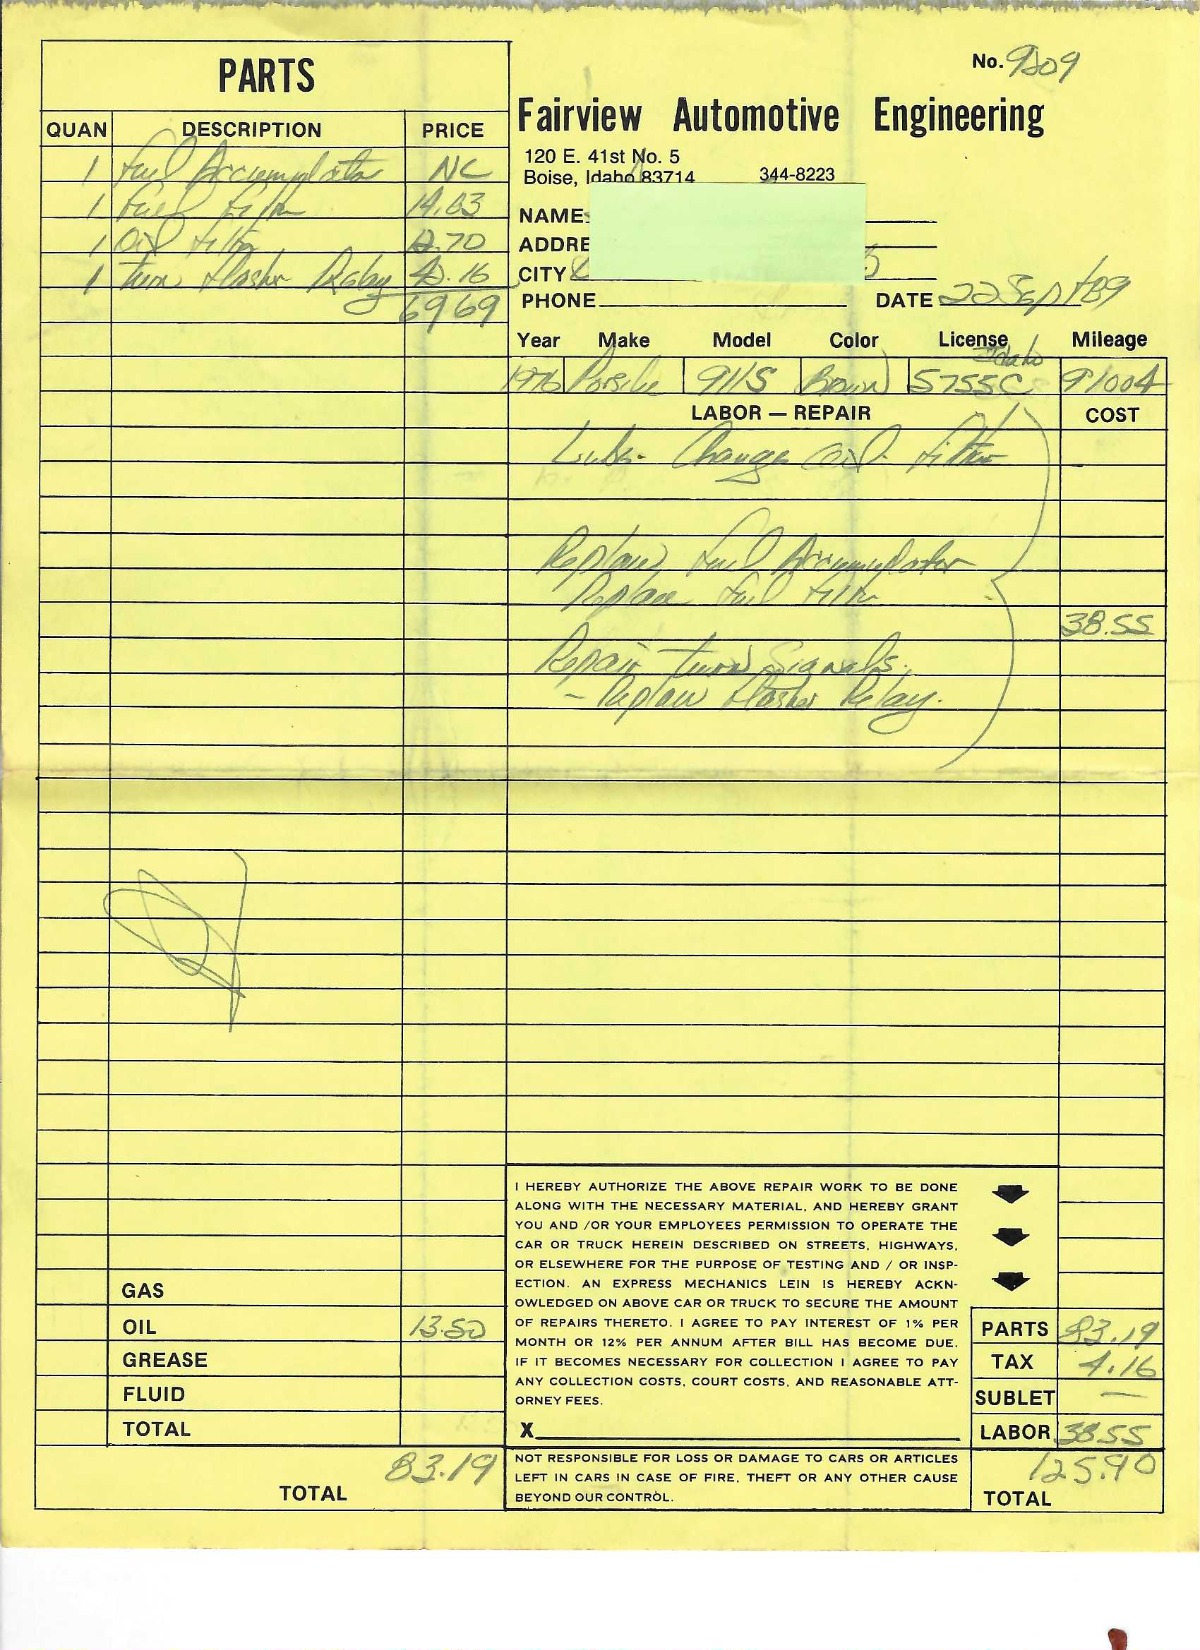 PARTS
QUAN DESCRIPTION PRICE
1 Fuel Accumulator NC
1 Fuel Filter
1 Oil Filter
1 Turn Flasher Relay
69 69
GAS
OIL 13.50
GREASE
FLUID
TOTAL
83.19
TOTAL
No.
Fairview Automotive Engineering
120 E. 41st No. 5
Boise, Idaho 83714 344-8223
NAME
ADDRE
CITY
PHONE DATE 22 Sept 89
Year Make Model Color License Mileage
Idaho
1976 Porsche 911S Brown 5755C 91004
LABOR — REPAIR COST
Lube. Change oil. filter
Replace Fuel Accumulator
Replace Fuel Filter
38.55
Repair turn Signals.
- Replace Flasher Relay.
I HEREBY AUTHORIZE THE ABOVE REPAIR WORK TO BE DONE
ALONG WITH THE NECESSARY MATERIAL, AND HEREBY GRANT
YOU AND /OR YOUR EMPLOYEES PERMISSION TO OPERATE THE
CAR OR TRUCK HEREIN DESCRIBED ON STREETS, HIGHWAYS,
OR ELSEWHERE FOR THE PURPOSE OF TESTING AND / OR INSP-
ECTION. AN EXPRESS MECHANICS LEIN IS HEREBY ACKN-
OWLEDGED ON ABOVE CAR OR TRUCK TO SECURE THE AMOUNT
OF REPAIRS THERETO. I AGREE TO PAY INTEREST OF 1% PER
MONTH OR 12% PER ANNUM AFTER BILL HAS BECOME DUE.
IF IT BECOMES NECESSARY FOR COLLECTION I AGREE TO PAY
ANY COLLECTION COSTS, COURT COSTS, AND REASONABLE ATT-
ORNEY FEES.
X
NOT RESPONSIBLE FOR LOSS OR DAMAGE TO CARS OR ARTICLES
LEFT IN CARS IN CASE OF FIRE, THEFT OR ANY OTHER CAUSE
BEYOND OUR CONTROL.
PARTS 83.19
TAX 4.16
SUBLET —
LABOR 38.55
125.90
TOTAL